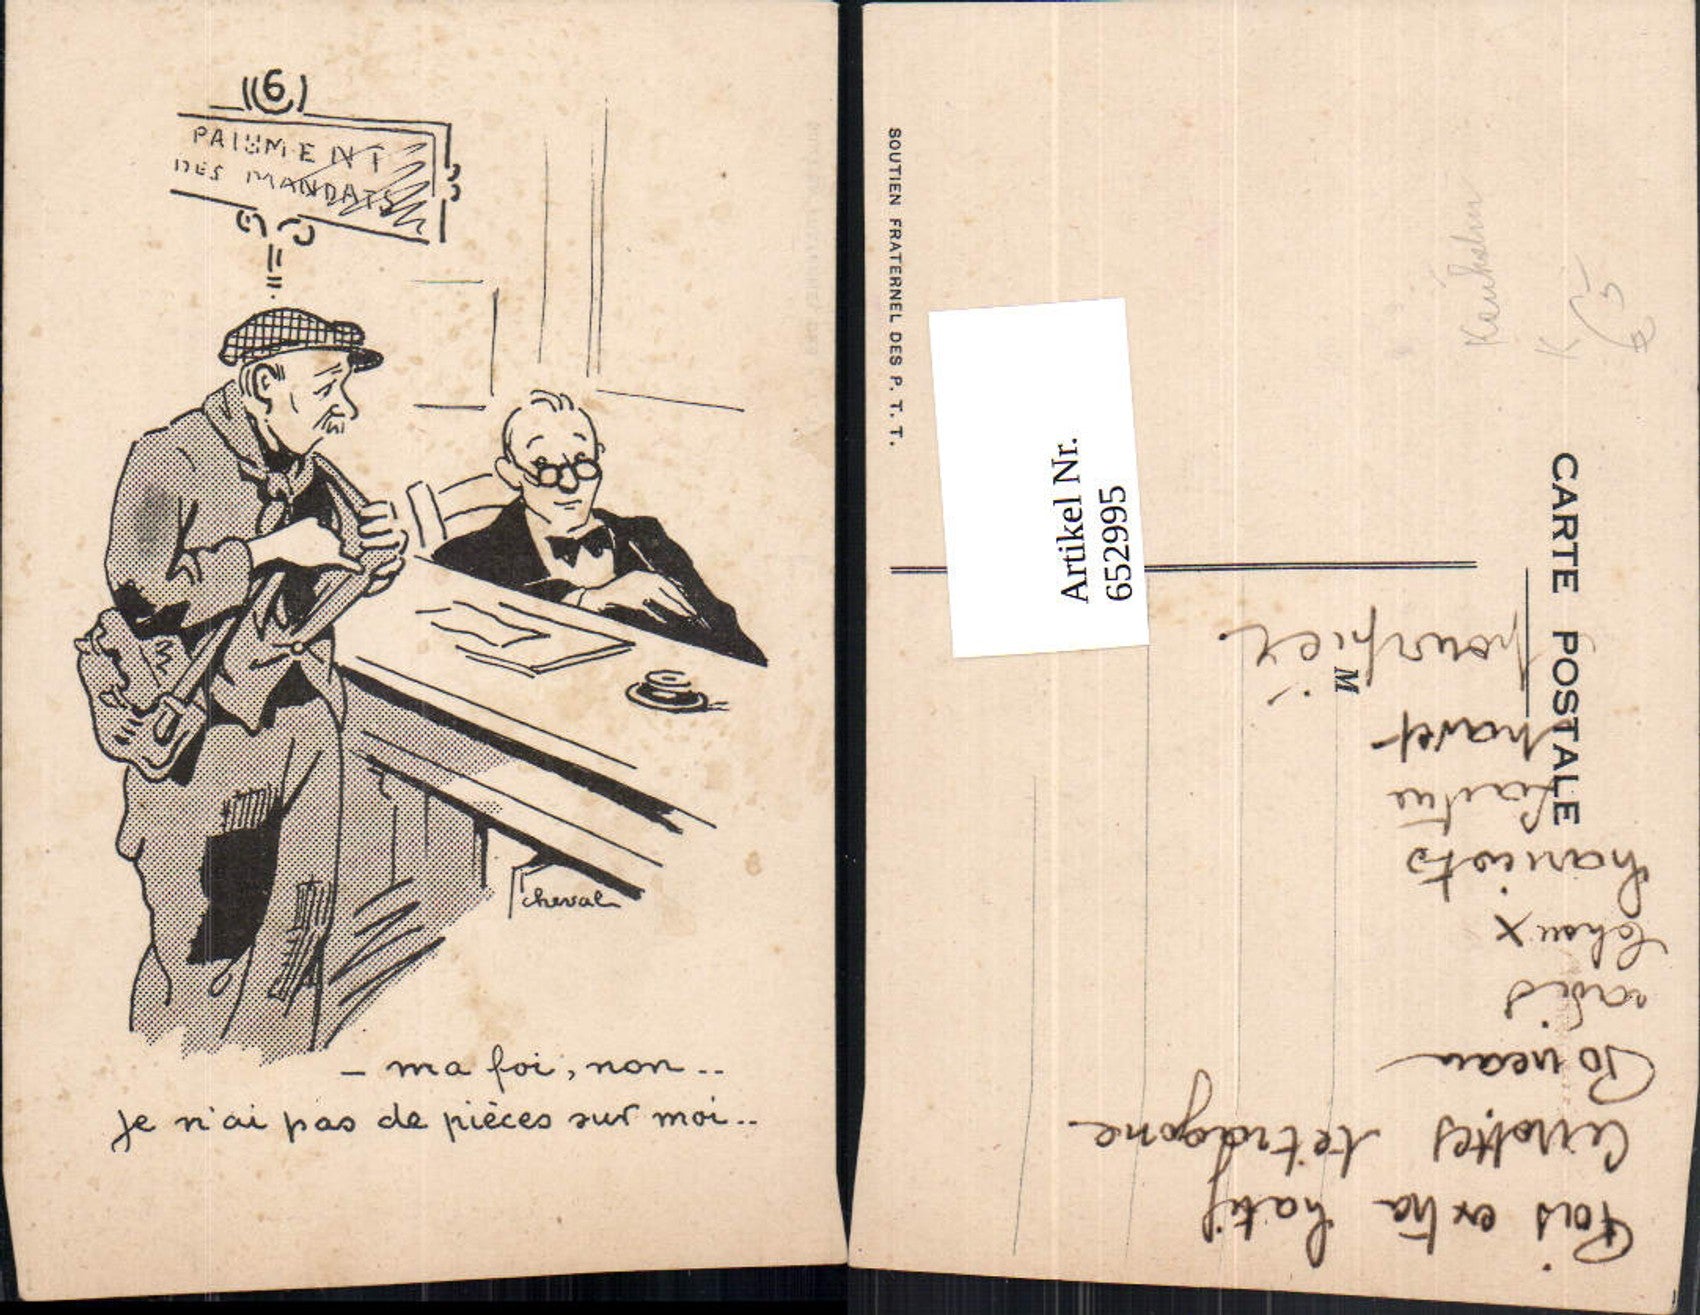 6
PAIEMENT
DES MANDATS
cheval
– ma foi, non..
je n'ai pas de pièces sur moi..
SOUTIEN FRATERNEL DES P. T. T.
CARTE POSTALE
M
Artikel Nr.
6529995
K
Pois extra hatif
Carottes tétragone
Poireau
radis
Choux
haricots
laitue
navet
pourpier.